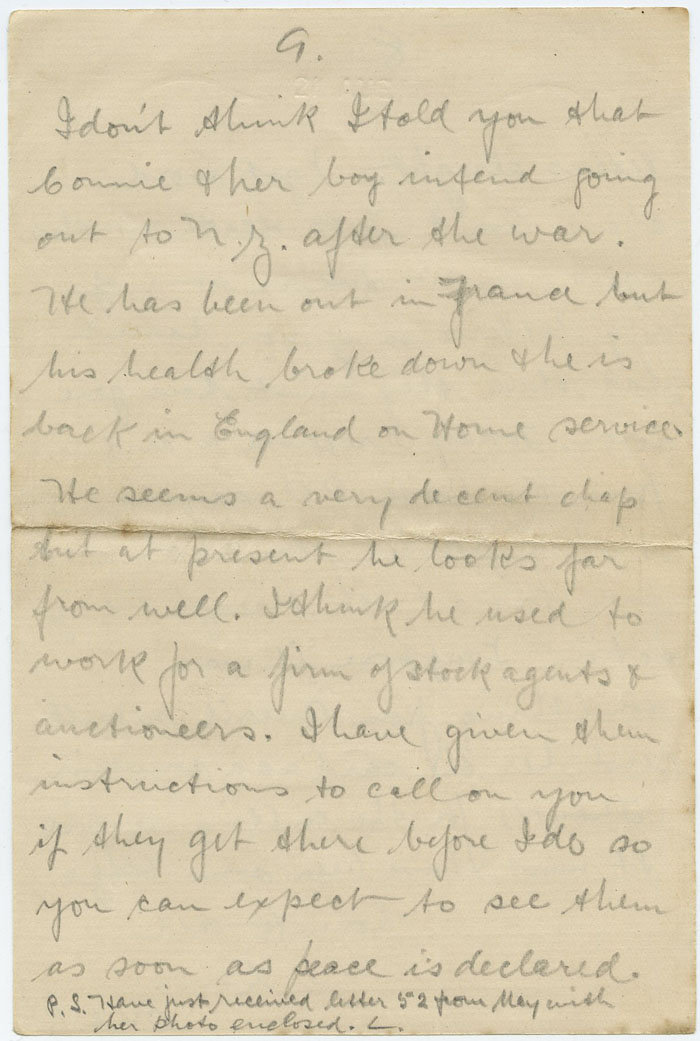 9.
I don't think I told you that
Connie & her boy intend going
out to N.Z. after the war.
He has been out in France but
his health broke down & he is
back in England on Home service.
He seems a very decent chap
but at present he looks far
from well. I think he used to
work for a firm of stock agents &
auctioneers. I have given them
instructions to call on you
if they get there before I do so
you can expect to see them
as soon as peace is declared.
P.S. Have just received letter 52 from May with
her photo enclosed. L.